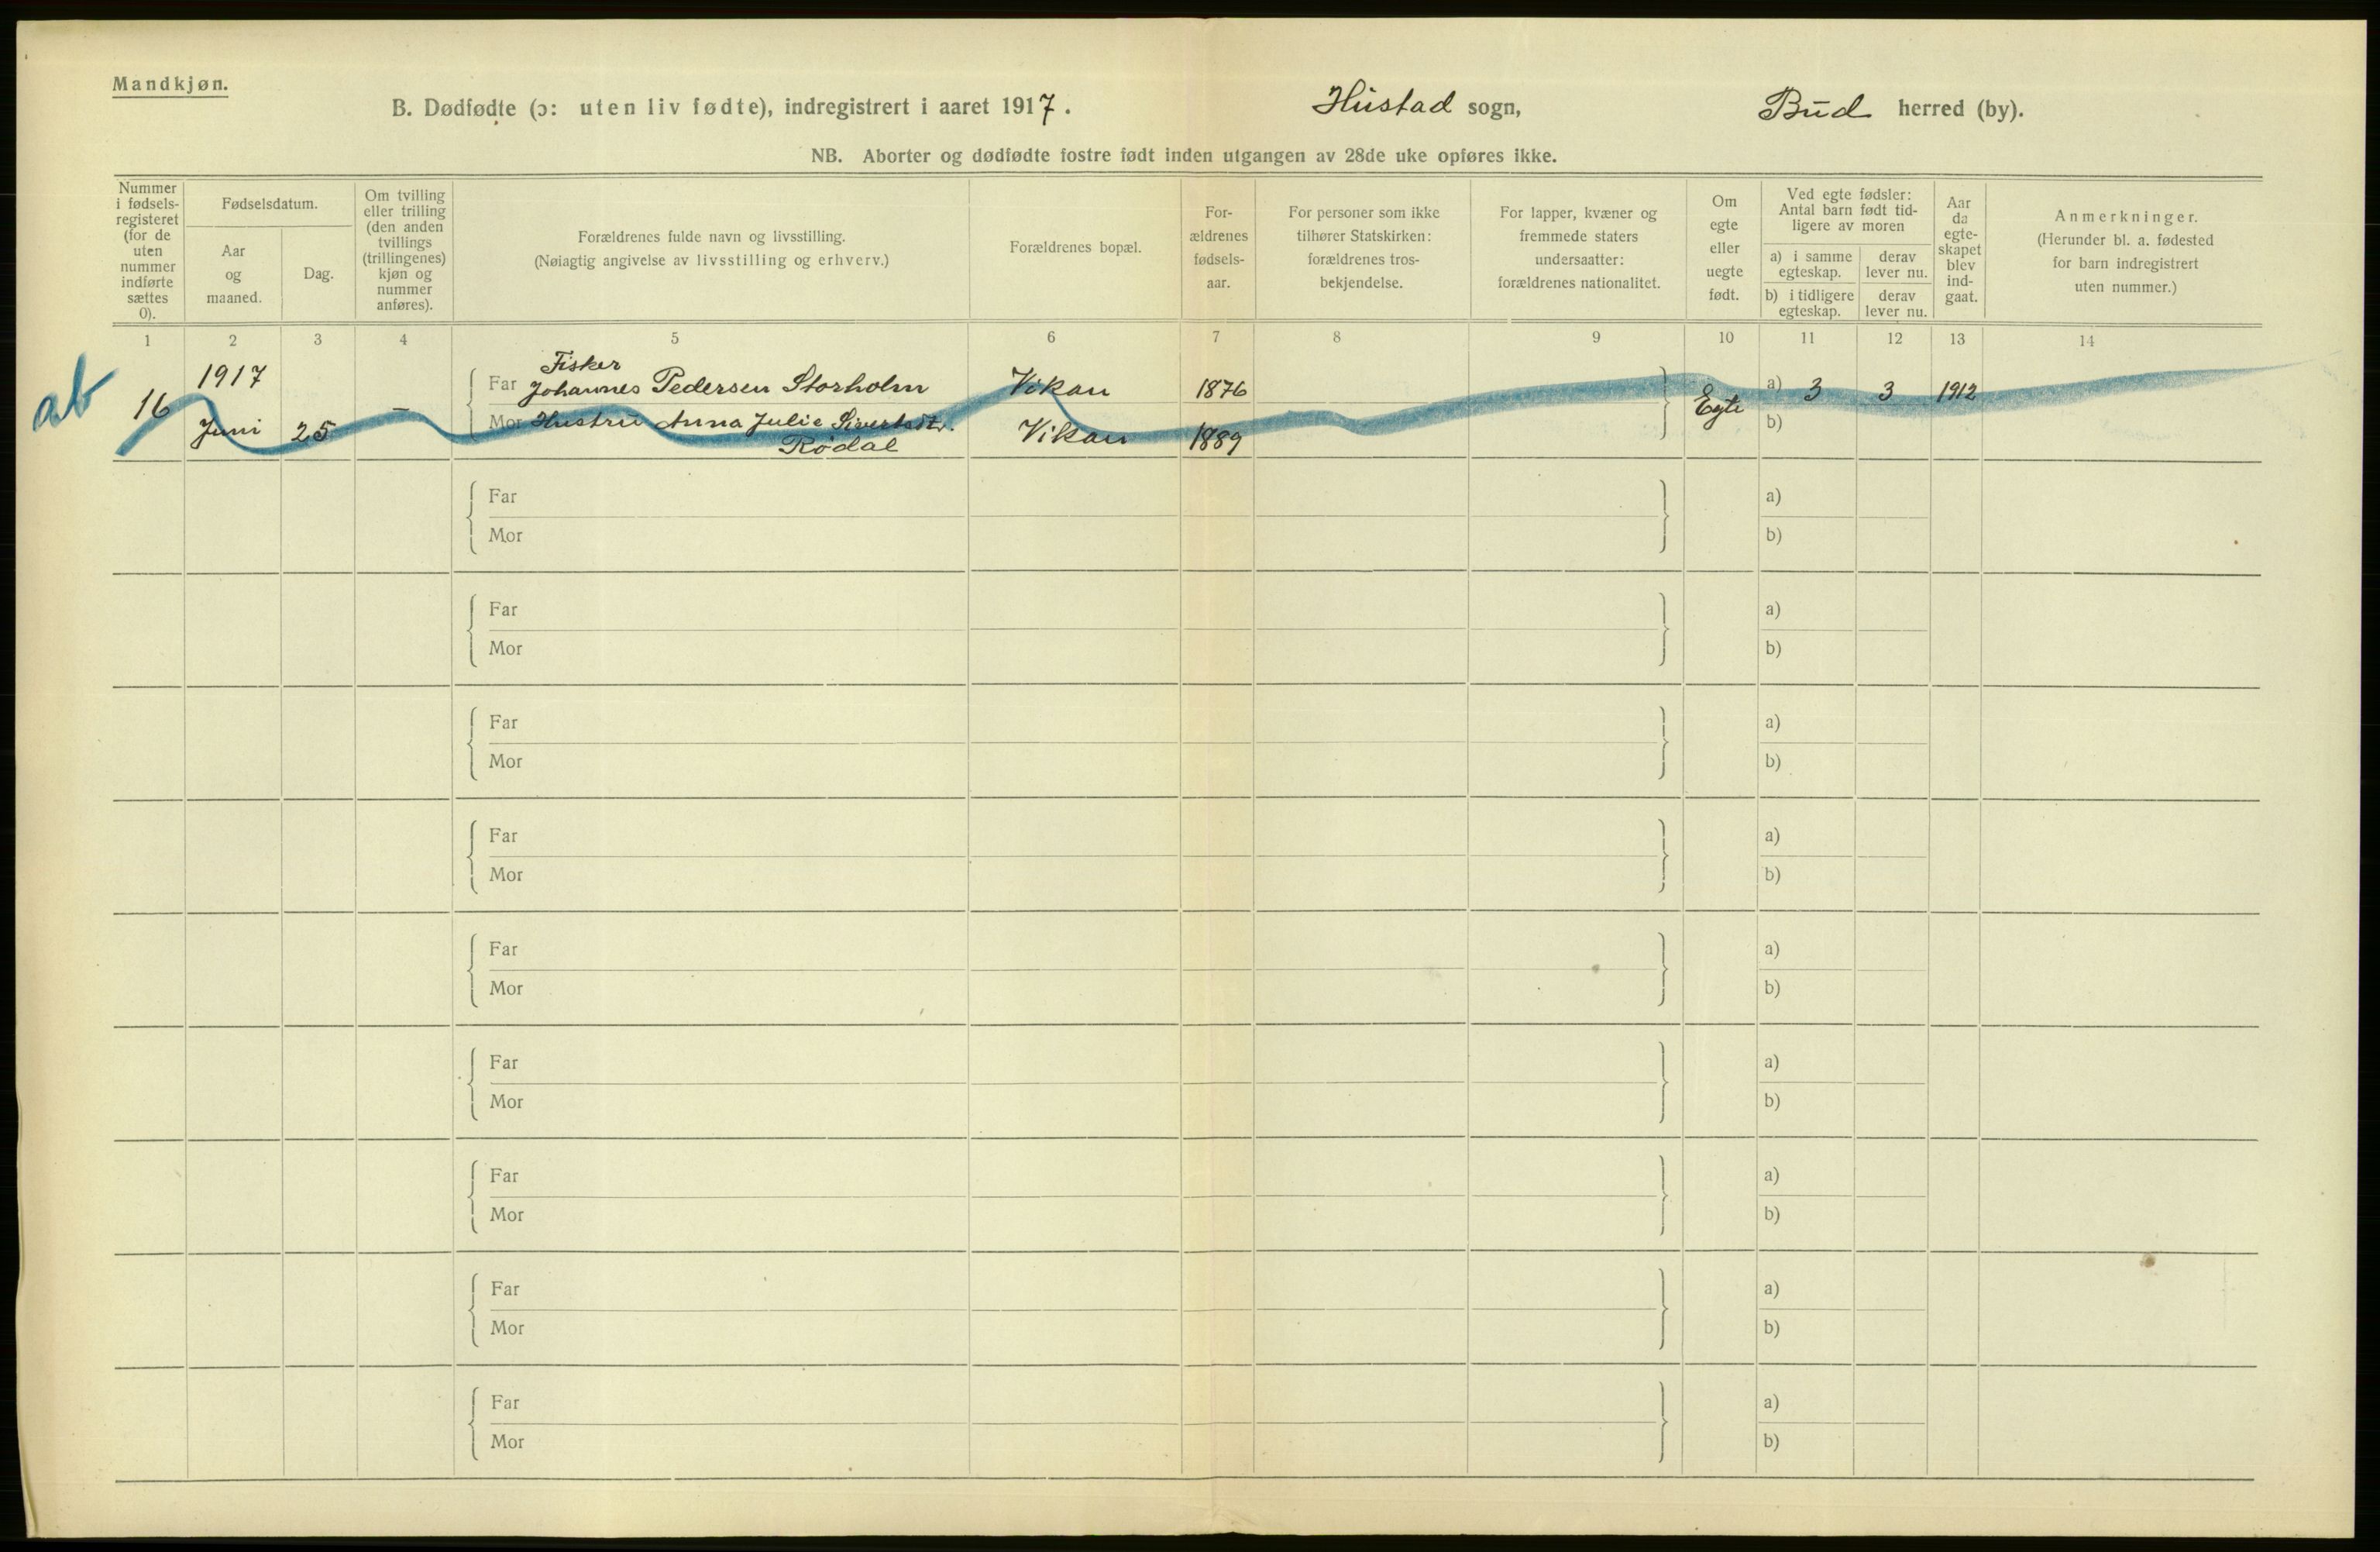 Mandkjøn.
B. Dødfødte (ɔ: uten liv fødte), indregistrert i aaret 1917. Hustad sogn, Bud herred (by).
NB. Aborter og dødfødte fostre født inden utgangen av 28de uke opføres ikke.
Nummer
i fødsels-
registeret
(for de
uten
nummer
indførte
sættes
0).
Fødselsdatum.
Aar
og
maaned.
Dag.
Om tvilling
eller trilling
(den anden
tvillings
(trillingenes)
kjøn og
nummer
anføres).
Forældrenes fulde navn og livsstilling.
(Nøiagtig angivelse av livsstilling og erhverv.)
Forældrenes bopæl.
For-
ældrenes
fødsels-
aar.
For personer som ikke
tilhører Statskirken:
forældrenes tros-
bekjendelse.
For lapper, kvæner og
fremmede staters
undersaatter:
forældrenes nationalitet.
Om
egte
eller
uegte
født.
Ved egte fødsler:
Antal barn født tid-
ligere av moren
a) i samme
egteskap.
derav
lever nu.
b) i tidligere
egteskap.
derav
lever nu.
Aar
da
egte-
skapet
blev
ind-
gaat.
Anmerkninger.
(Herunder bl. a. fødested
for barn indregistrert
uten nummer.)
1 2 3 4 5 6 7 8 9 10 11 12 13 14
ab
16
1917
Juni 25 –
Fisker
Far Johannes Pedersen Storholm Vikan 1876
Mor Hustru Anna Julie Sivertsdtr.
Rødal Vikan 1889
Egte
a) 3 3 1912
b)
Far a)
Mor b)
Far a)
Mor b)
Far a)
Mor b)
Far a)
Mor b)
Far a)
Mor b)
Far a)
Mor b)
Far a)
Mor b)
Far a)
Mor b)
Far a)
Mor b)